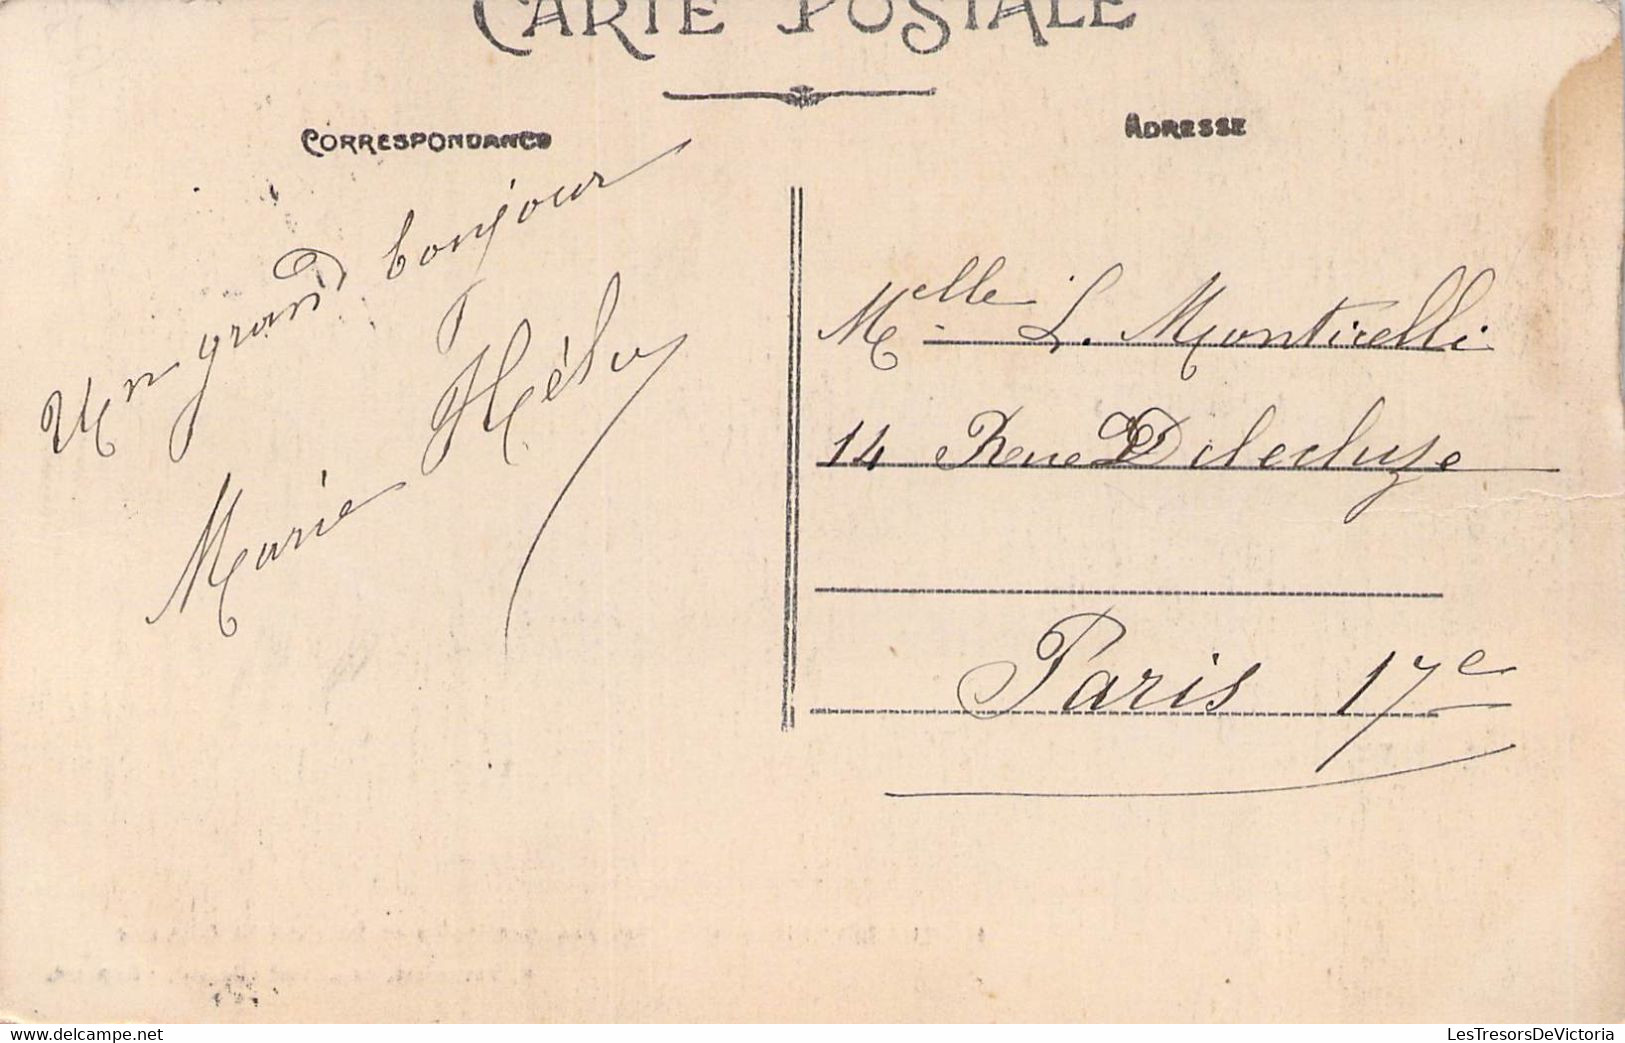 CARTE POSTALE
CORRESPONDANCE
ADRESSE
Un grand bonjour
Marie
Melle L. Monticelli
14 Rue
Paris 17e
www.delcampe.net
LesTresorsDeVictoria